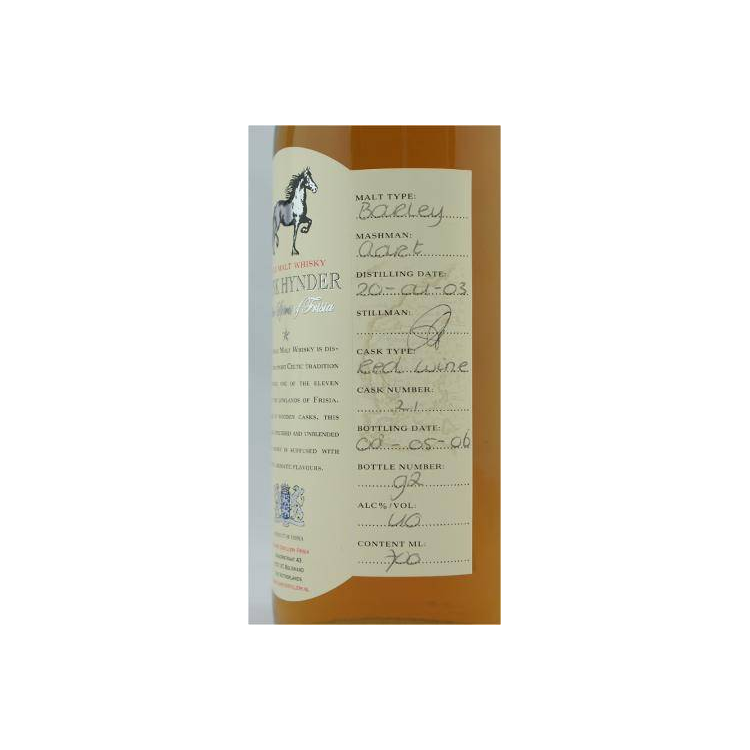 MALT WHISKY
HYNDER
of Frisia
MALT WHISKY IS DIS-
CELTIC TRADITION
ONE OF THE ELEVEN
LOWLANDS OF FRISIA.
WOODEN CASKS, THIS
AND UNBLENDED
IS SUFFUSED WITH
FLAVOURS.
NETHERLANDS
MALT TYPE:
Barley
MASHMAN:
Aart
DISTILLING DATE:
20-01-03
STILLMAN:
CASK TYPE:
Red wine
CASK NUMBER:
21
BOTTLING DATE:
08-05-06
BOTTLE NUMBER:
92
ALC%/VOL:
40
CONTENT ML:
700